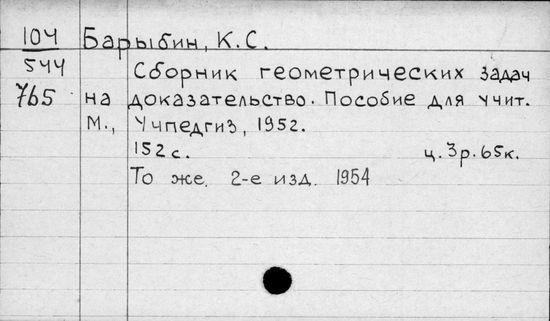 104 Барыбин, К.С.
544 Сборник геометрических задач
765 на доказательство. Пособие для учит.
М., Учпедгиз, 1952.
152 с. ц. 3р. 65к.
То же. 2-е изд. 1954